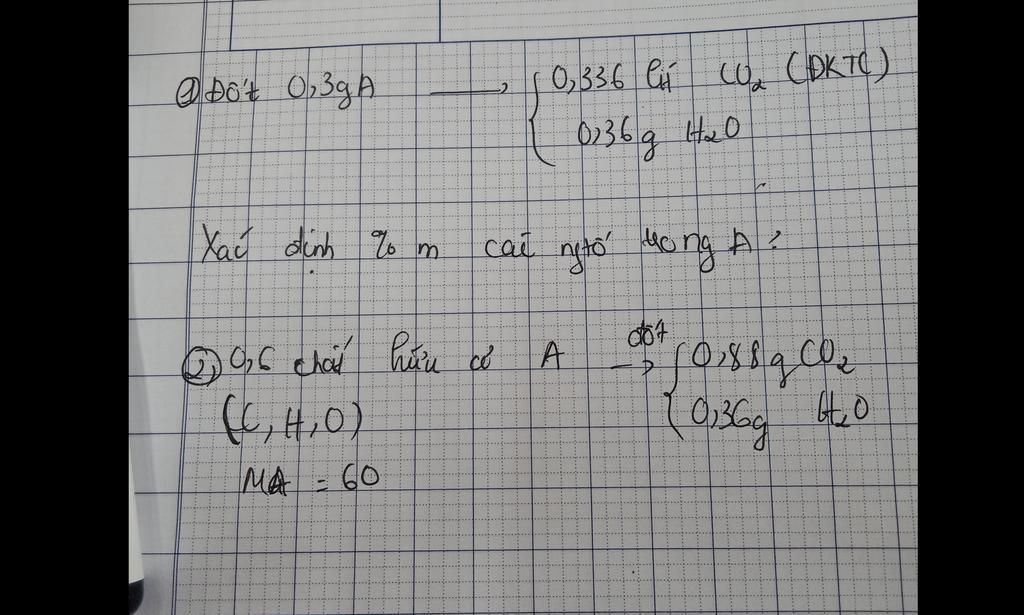 ① Đốt 0,3g A → { 0,336 lít CO₂ (ĐKTC)
0,36g H₂O
Xác định % m các ngtố trong A?
② 0,6 chất hữu cơ A đốt → { 0,88g CO₂
(C, H, O) { 0,36g H₂O
MA = 60